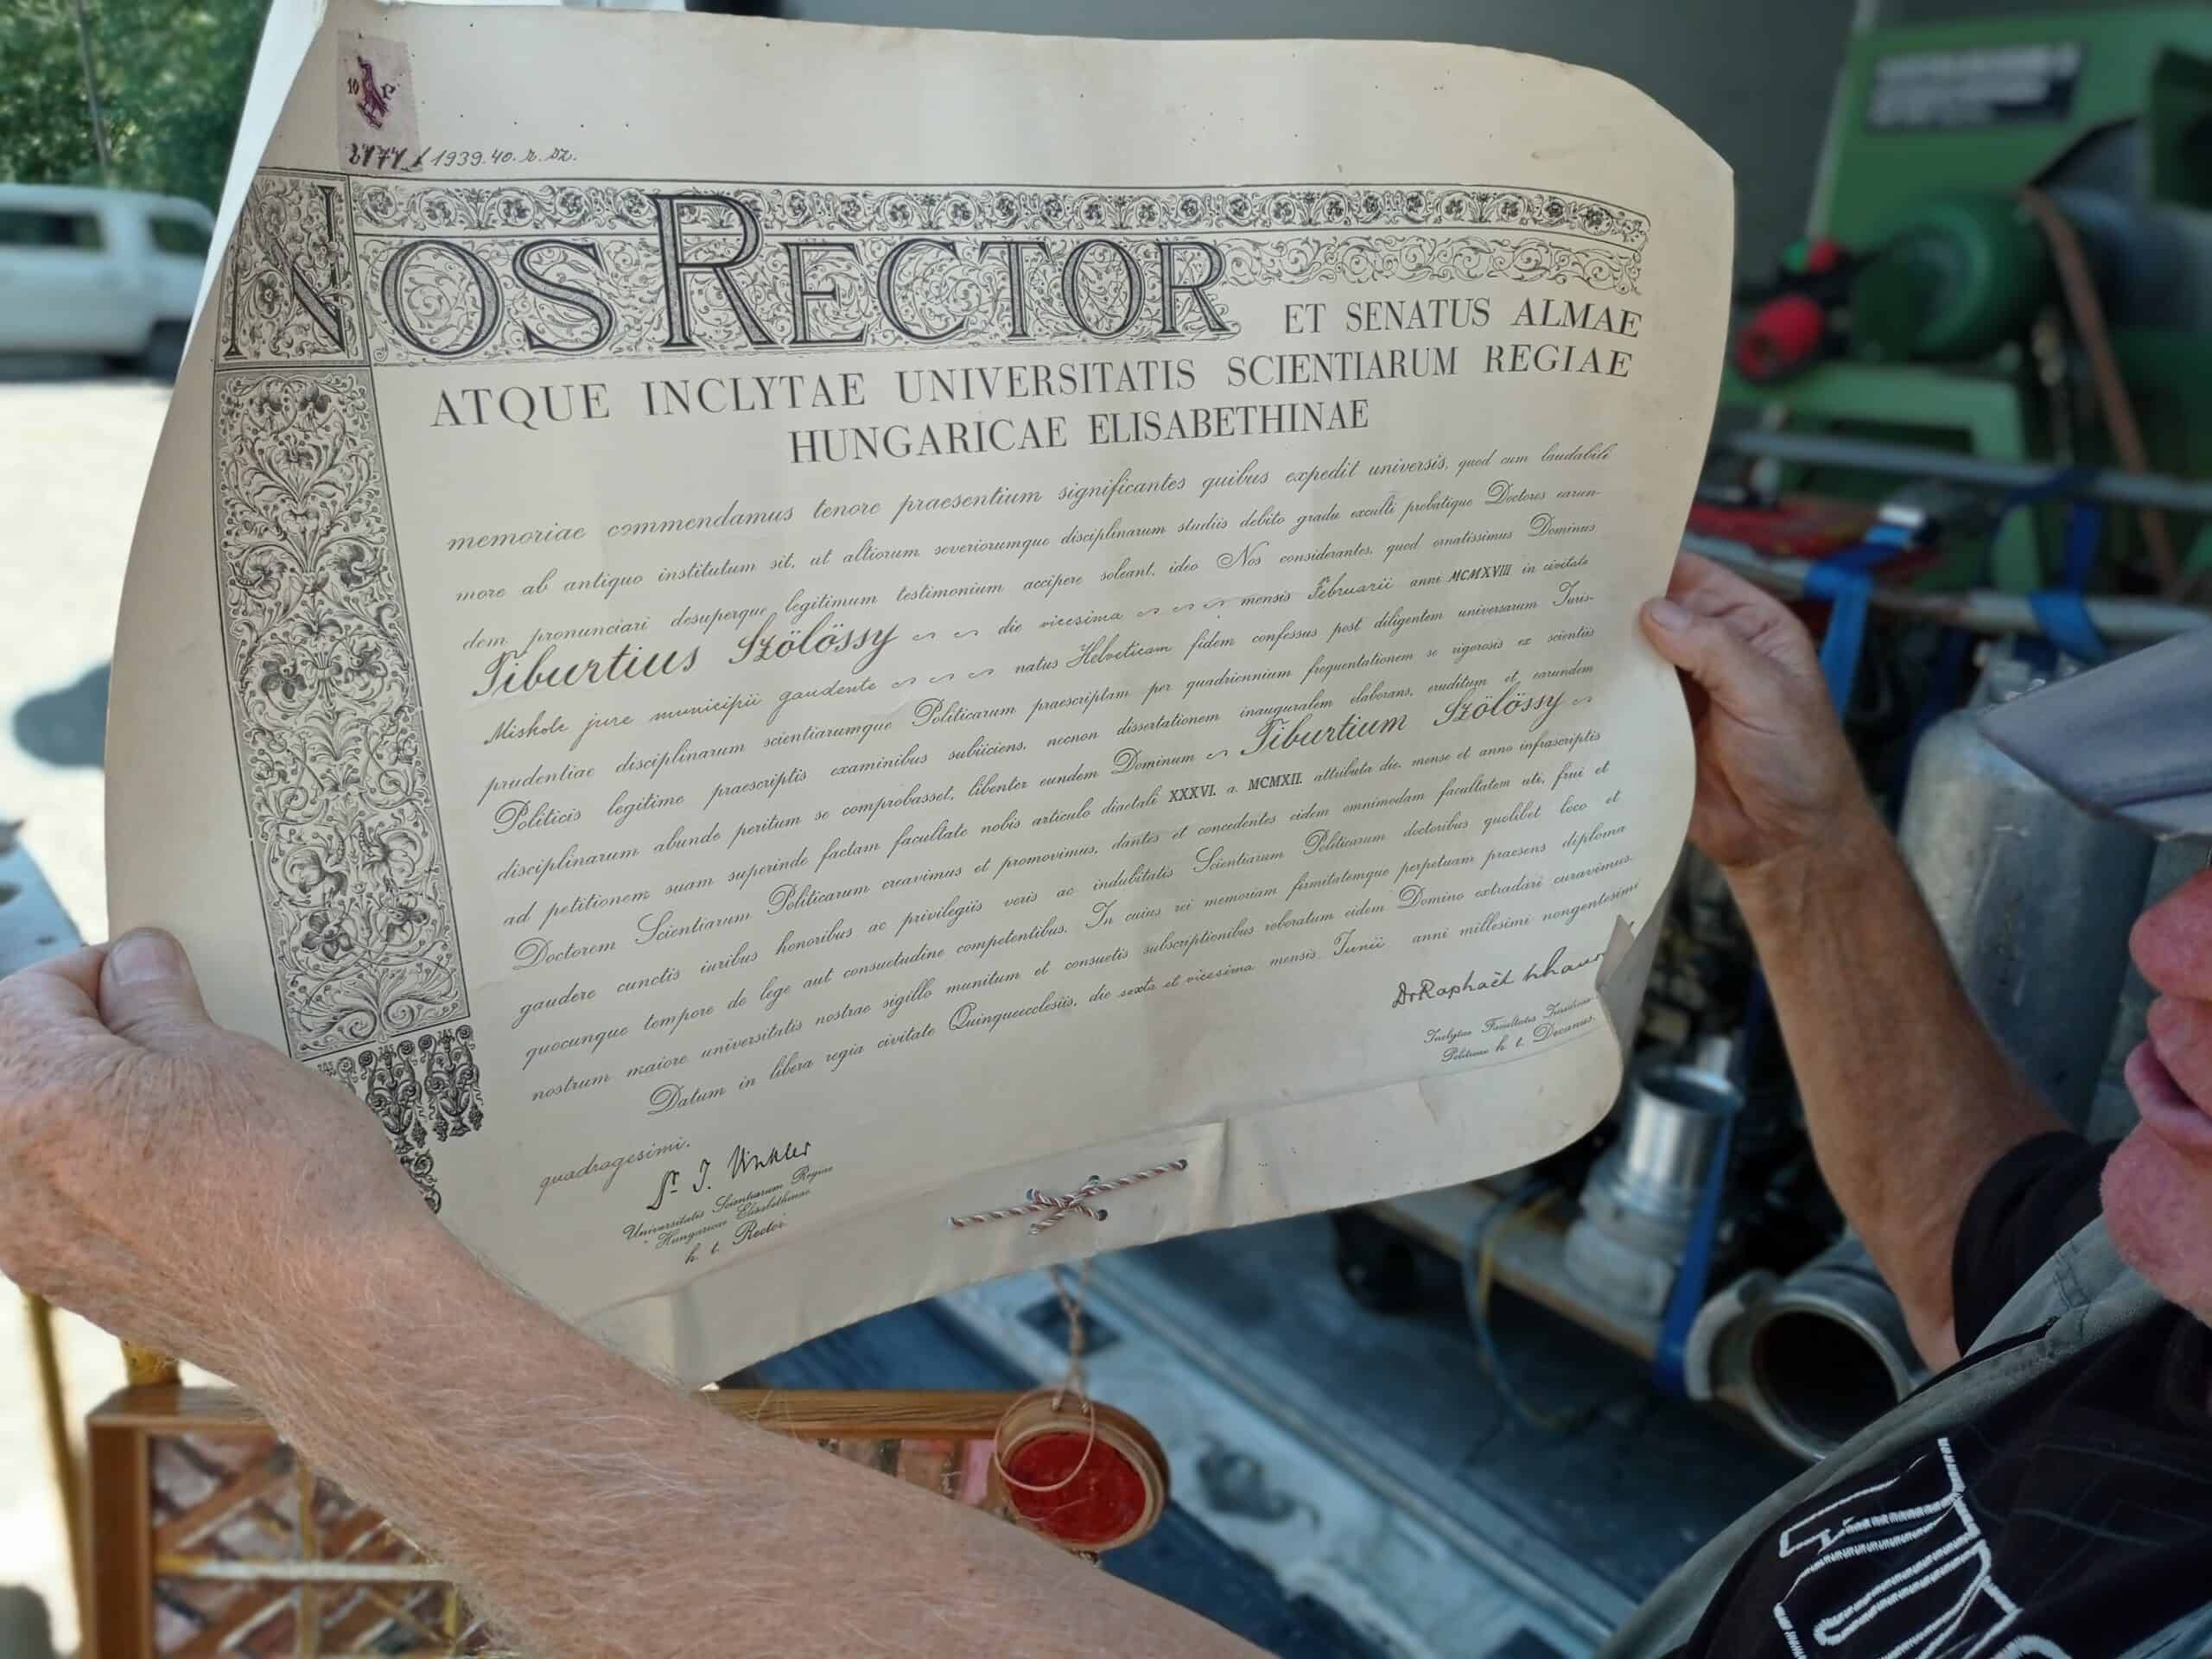 10
1939.40. r. sz.
NOS RECTOR ET SENATUS ALMAE
ATQUE INCLYTAE UNIVERSITATIS SCIENTIARUM REGIAE
HUNGARICAE ELISABETHINAE
memoriae commendamus tenore praesentium significantes quibus expedit universis, quod cum laudabili
more ab antiquo institutum sit, ut altiorum severiorumque disciplinarum studiis debito gradu exculti probatique Doctores earun-
dem pronunciari desuperque legitimum testimonium accipere soleant, ideo Nos considerantes, quod ornatissimus Dominus
Tiburtius Szölössy die vicesima mensis Februarii anni MCMXVIII in civitate
Miskolc jure municipii gaudente natus Helveticam fidem confessus post diligentem universarum Juris-
prudentiae disciplinarum scientiarumque Politicarum praescriptam per quadriennium frequentationem se rigorosis ex scientiis
Politicis legitime praescriptis examinibus subiiciens, necnon dissertationem inauguralem elaborans, eruditum et earundem
disciplinarum abunde peritum se comprobasset, libenter eundem Dominum Tiburtium Szölössy
ad petitionem suam superinde factam facultate nobis articulo diaetali XXXVI. a. MCMXII. attributa die, mense et anno infrascriptis
Doctorem Scientiarum Politicarum creavimus et promovimus, dantes et concedentes eidem omnimodam facultatem uti, frui et
gaudere cunctis iuribus honoribus ac privilegiis veris ac indubitatis Scientiarum Politicarum doctoribus quolibet loco et
quocunque tempore de lege aut consuetudine competentibus. In cuius rei memoriam firmitatemque perpetuam praesens diploma
nostrum maiore universitatis nostrae sigillo munitum et consuetis subscriptionibus roboratum eidem Domino extradari curavimus.
Datum in libera regia civitate Quinqueecclesiis, die sexta et vicesima mensis Junii anni millesimi nongentesimi
quadragesimi.
Dr Raphaël
Inclytae Facultatis Juridico-
Politicae h. t. Decanus.
Dr. J. Winkler
Universitatis Scientiarum Regiae
Hungaricae Elisabethinae
h. t. Rector.